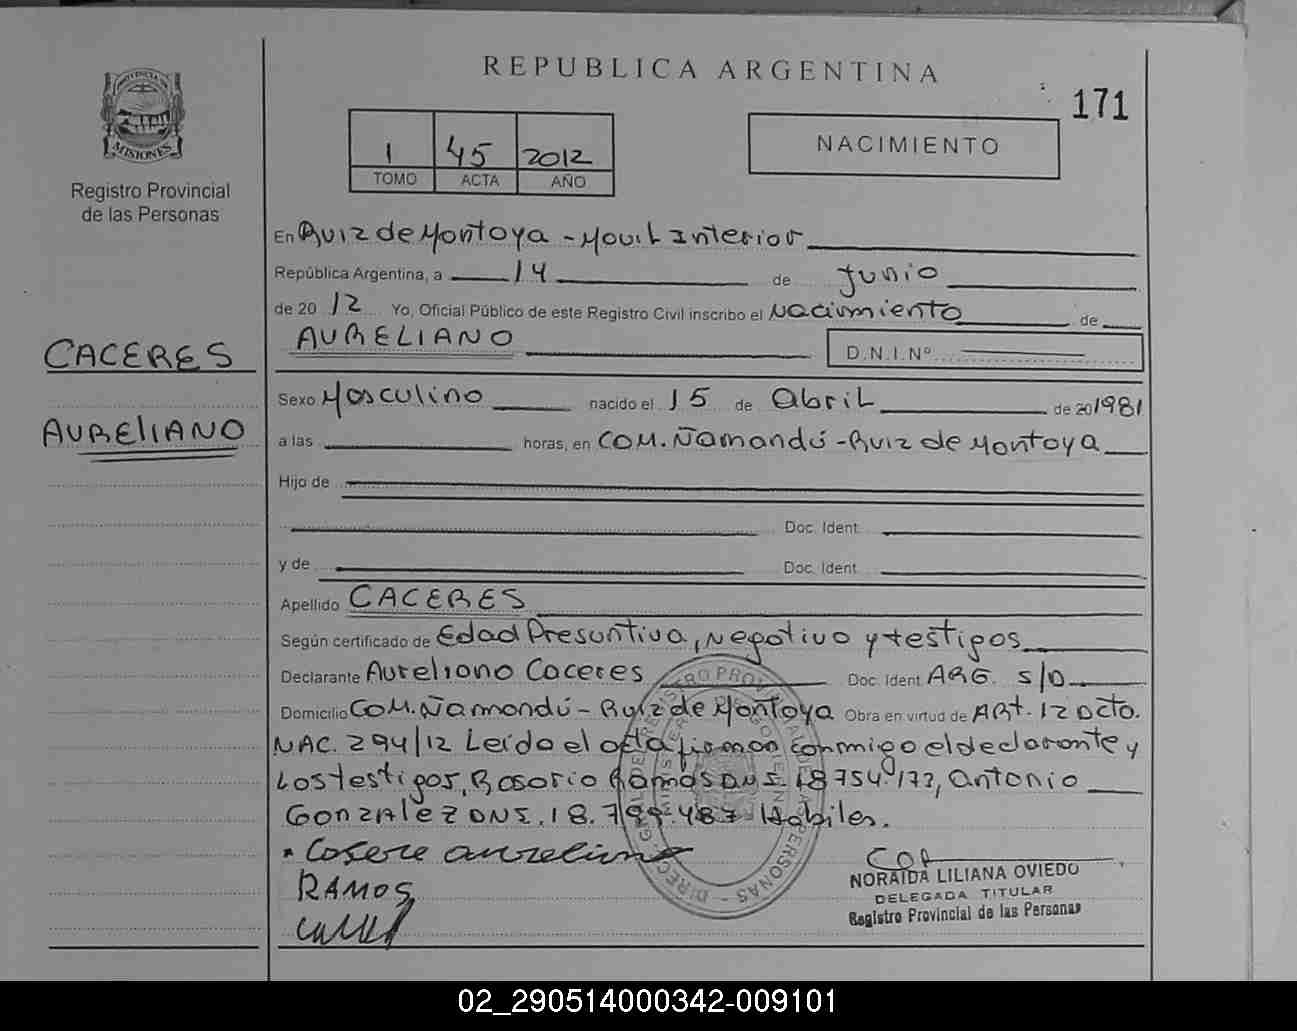 REPUBLICA ARGENTINA
171
PROVINCIA DE
MISIONES
Registro Provincial
de las Personas
1 45 2012
TOMO ACTA AÑO
NACIMIENTO
En Ruiz de Montoya - Movil Interior
República Argentina, a 14 de Junio
de 2012 Yo, Oficial Público de este Registro Civil inscribo el Nacimiento de
AURELIANO D.N.I.Nº
CACERES
AURELIANO
Sexo Masculino nacido el 15 de Abril de 20 1981
a las horas, en COM. Ñamandú - Ruiz de Montoya
Hijo de
Doc. Ident.
y de Doc. Ident.
Apellido CACERES
Según certificado de Edad Presuntiva, Negativo y testigos
Declarante Aureliano Caceres Doc. Ident. ARG. S/D
Domicilio COM. Ñamandú - Ruiz de Montoya Obra en virtud de ARt. 12 Dcto.
NAC. 294/12 Leída el acta firman conmigo el declarante y
Los testigos, Rosario Ramos DNI. 18754.173, Antonio
Gonzalez DNI. 18.799.487 Habiles.
Casere aureliano
RAMOS
COR
NORAIDA LILIANA OVIEDO
DELEGADA TITULAR
Registro Provincial de las Personas
02_290514000342-009101